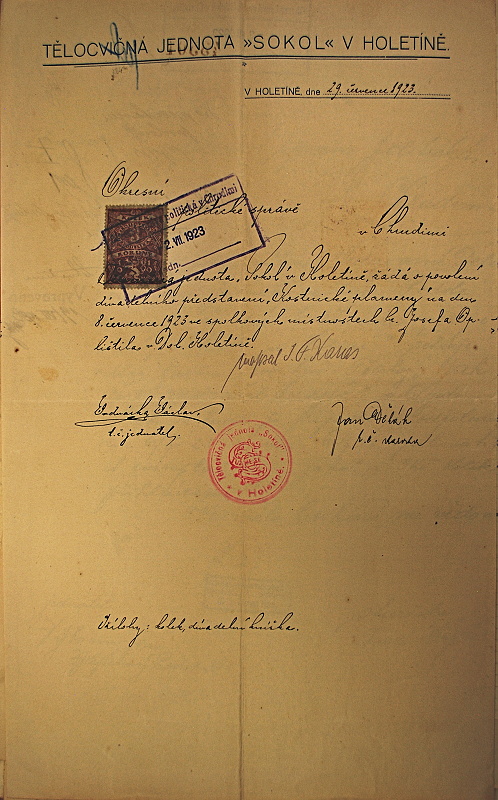 TĚLOCVIČNÁ JEDNOTA »SOKOL« V HOLETÍNĚ.
V HOLETÍNĚ, dne 29. července 1923.
Okresní
politické správě
v Chrudimi
politická v Chrudimi
2. VII. 1923
jednota „Sokol" v Holetíně, žádá o povolení
divadelního představení „Kostnické plameny" na den
8. července 1923 ve spolkových místnostech h. Josefa Op-
lištila v Dol. Holetíně
napsal J. F. Karas
Václav
t. č. jednatel.
Jan
t. č. starosta
Tělocvičná jednota „Sokol"
v Holetíně.
Přílohy: kolek, divadelní knížka.